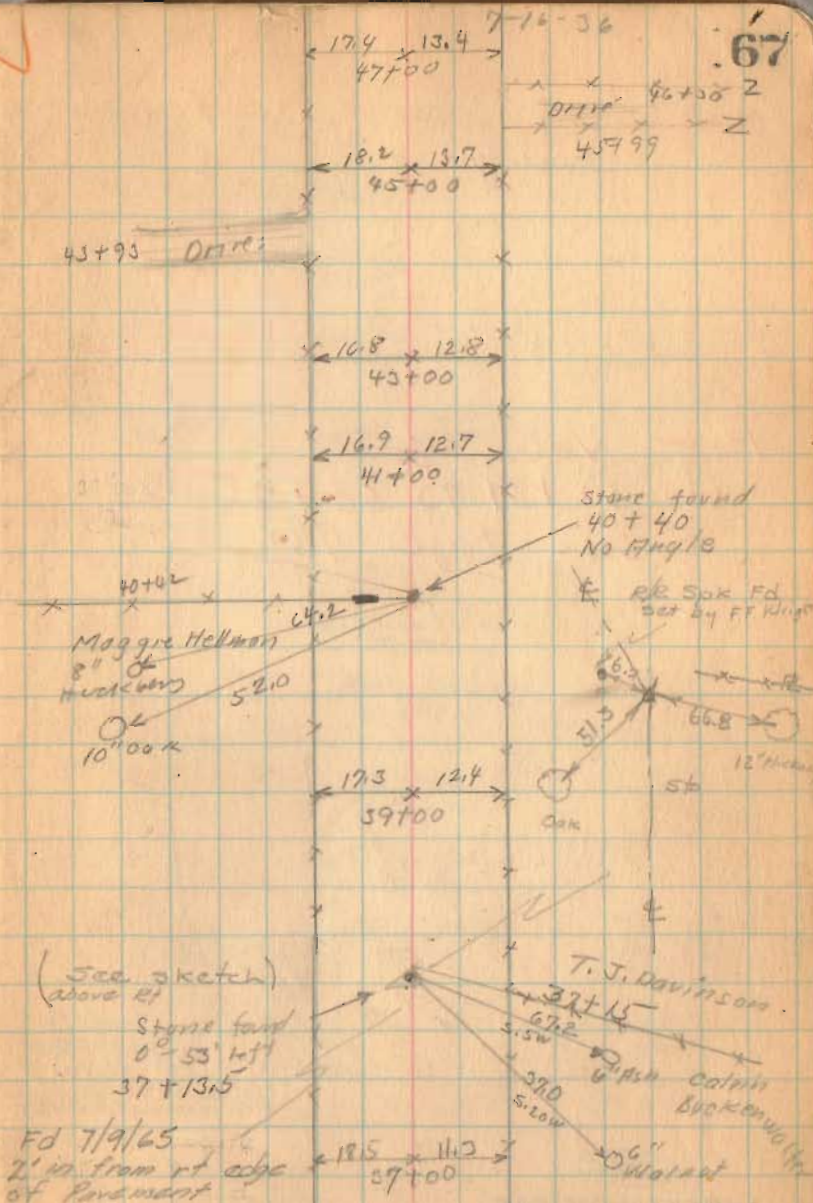 7-16-36
67
17.4 13.4
47+00
46+30
Drive
45+99
18.2 13.7
45+00
43+93 Drive
16.8 12.8
43+00
16.9 12.7
41+00
Stone found
40+40
No Angle
40+42
64.2
Maggie Hellman
8"
52.0
10" Oak
R/R Spk Fd
Set by FF
66.8
51.3
12"
Oak
17.3 12.4
39+00
(See sketch)
above Rt
Stone found
0°-53' left
37+13.5
T. J. Davinson
37+15
67.2
S.5W
6" Ash
Calvin
37.0
S.20W
6"
Walnut
Fd 7/9/65
2' in from rt edge
of Pavement
18.5 11.3
37+00